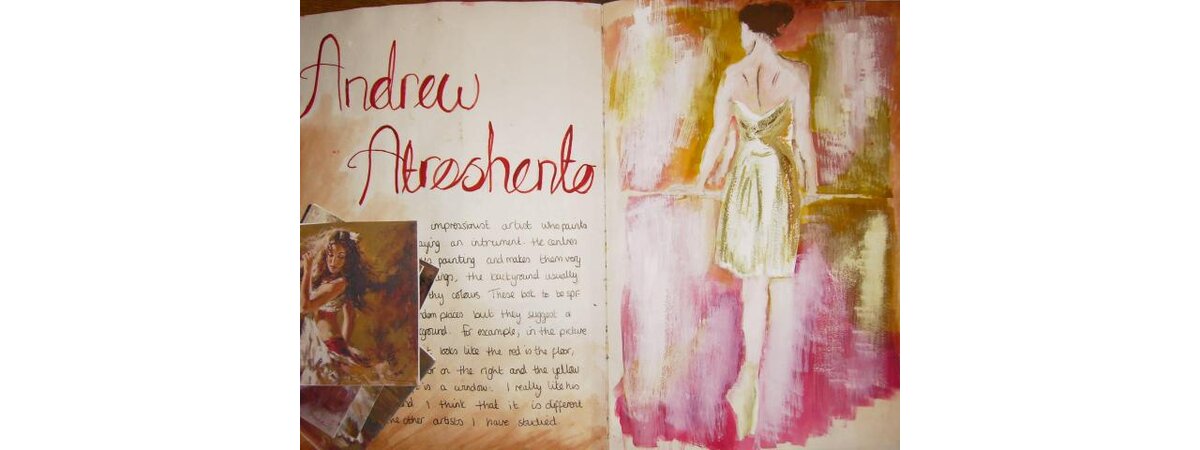 Andrew
Atroshento
impressionist artist who paints
aying an intrument. He centres
painting and makes them very
ings, the background usually
thy colours. These look to be
dom places but they suggest a
ground. For example, in the picture
t looks like the red is the floor,
or on the right and the yellow
is a window. I really like his
nd I think that it is different
he other artists I have studied.